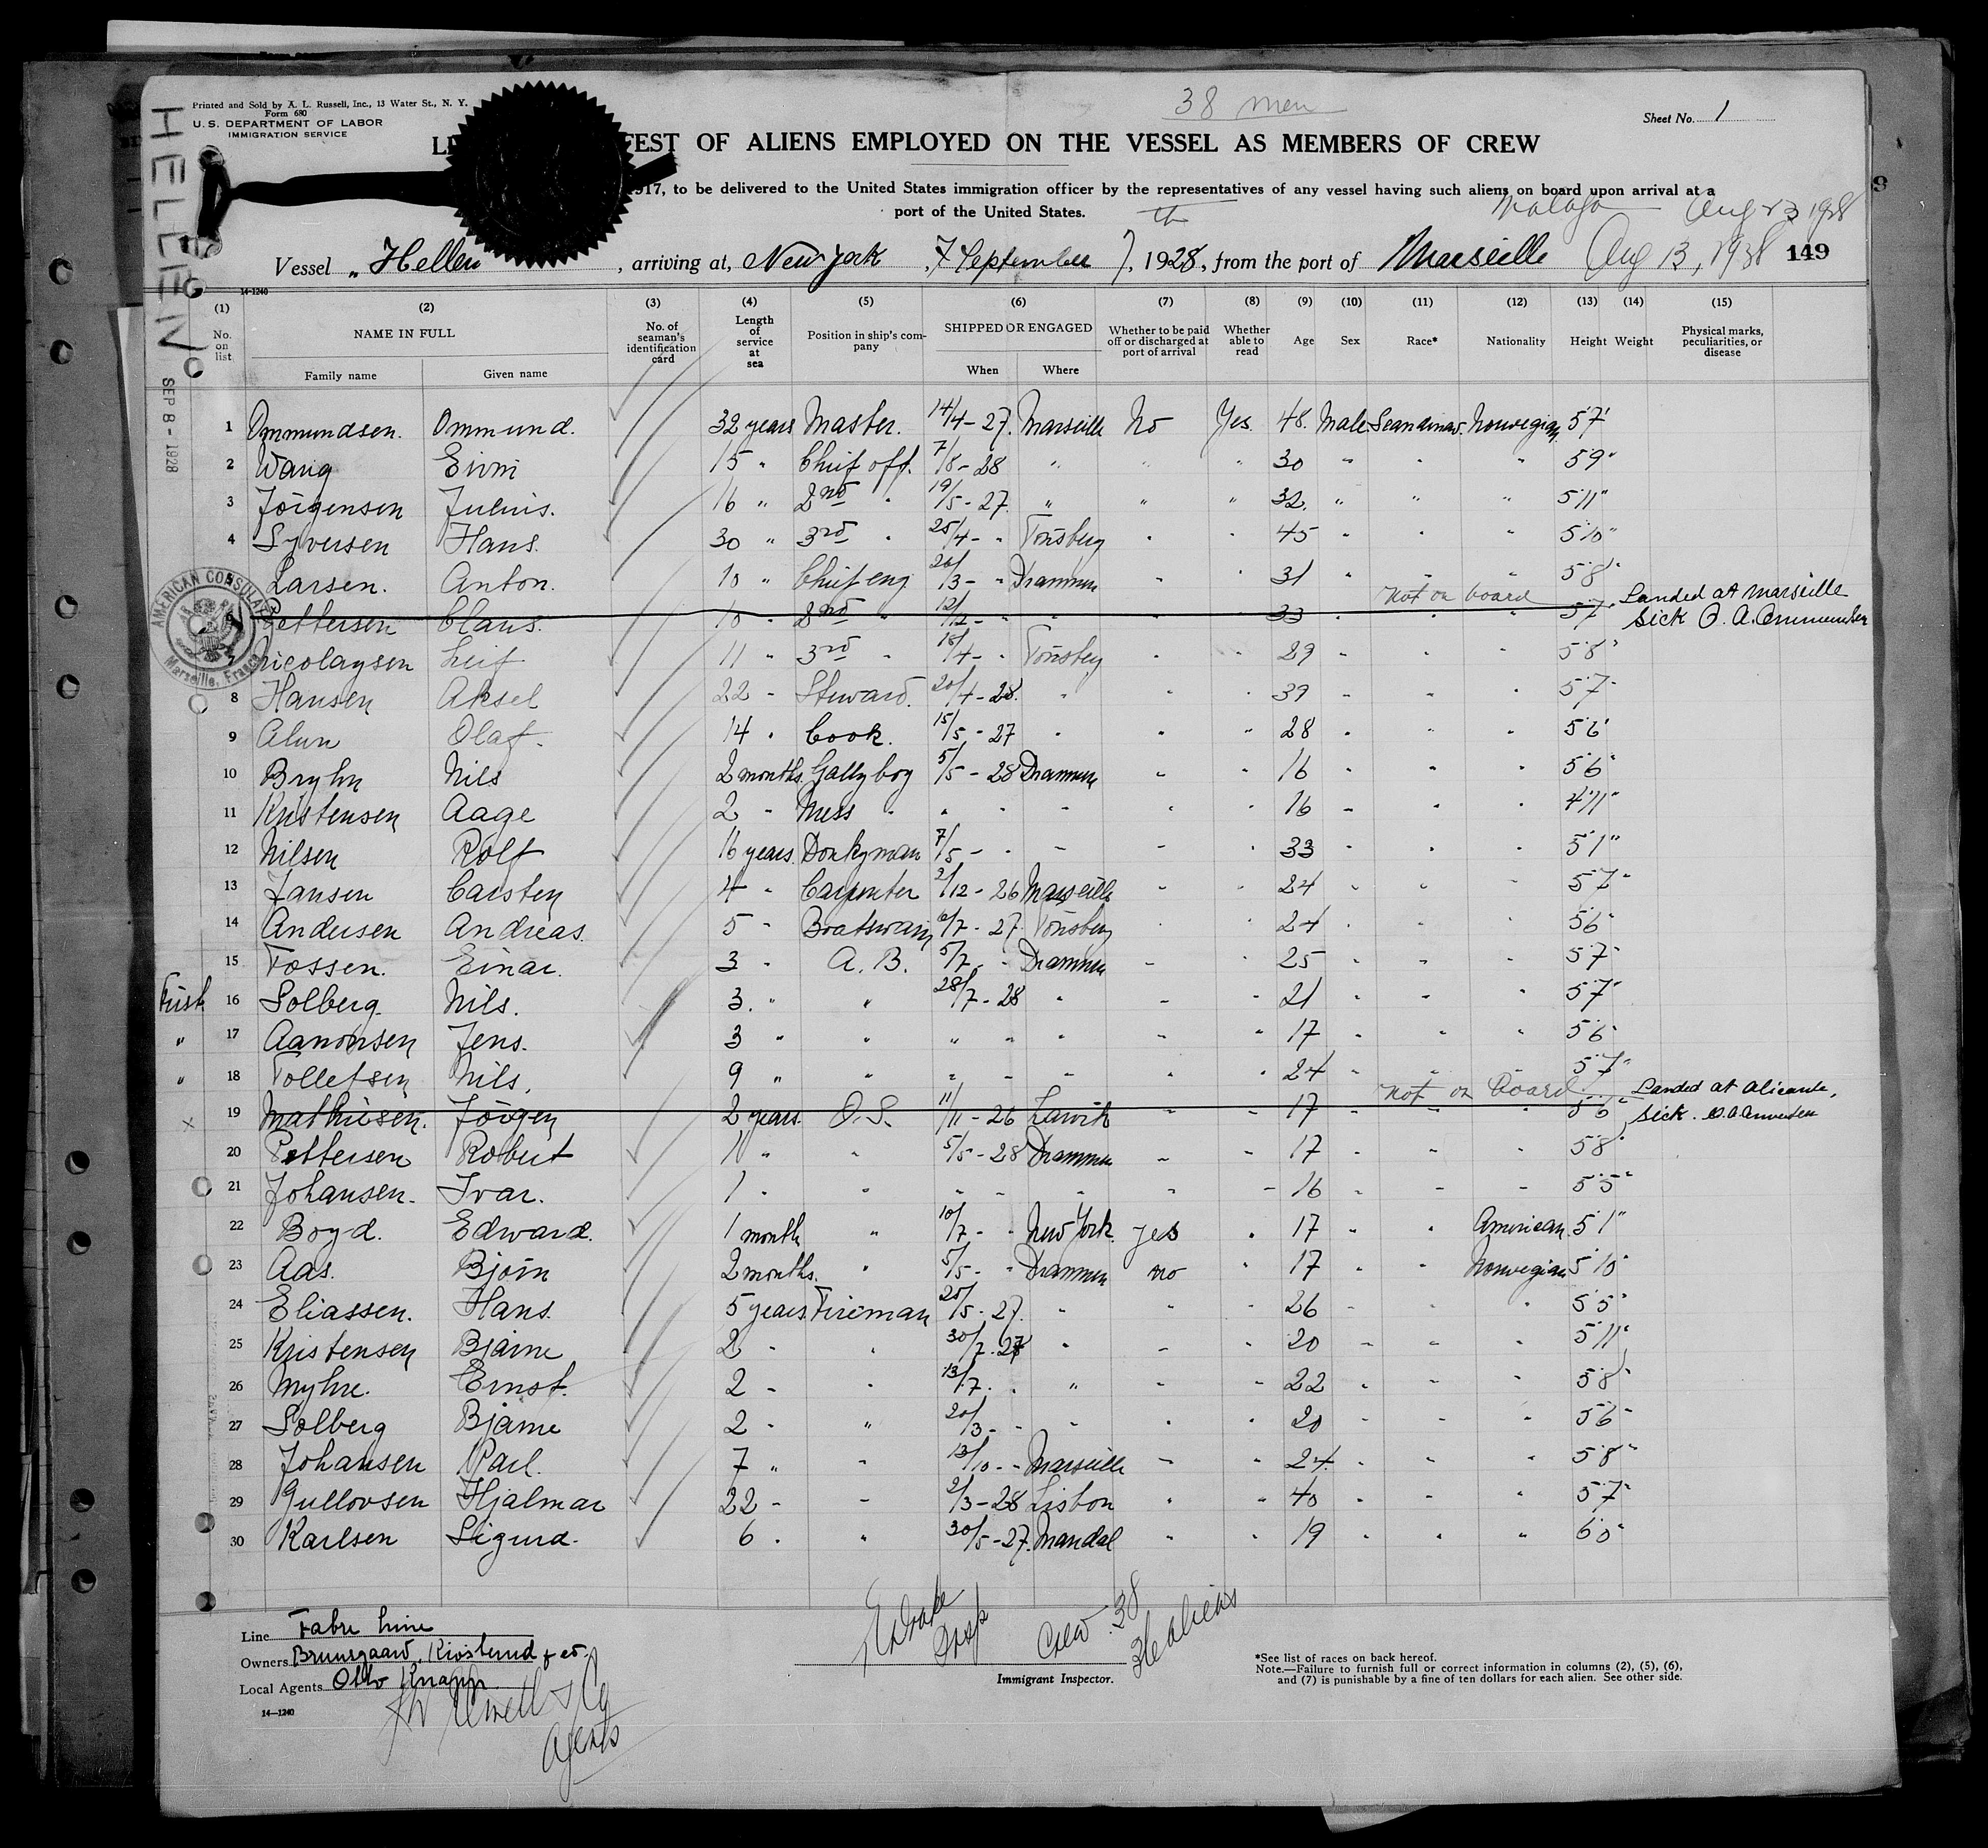 Printed and Sold by A. L. Russell, Inc., 13 Water St., N. Y.
Form 680
U. S. DEPARTMENT OF LABOR
IMMIGRATION SERVICE
38 men
Sheet No. 1
FEST OF ALIENS EMPLOYED ON THE VESSEL AS MEMBERS OF CREW
1917, to be delivered to the United States immigration officer by the representatives of any vessel having such aliens on board upon arrival at a
port of the United States.
Malaga Aug 23 1928
HELLEN
SEP 8 - 1928
Vessel "Hellen , arriving at, New York , 7 th September 7, 1928, from the port of Marseille Aug 13, 1928 149
14-1240
(1) (2) (3) (4) (5) (6) (7) (8) (9) (10) (11) (12) (13) (14) (15)
No. on list NAME IN FULL Family name Given name No. of seaman's identification card Length of service at sea Position in ship's company SHIPPED OR ENGAGED When Where Whether to be paid off or discharged at port of arrival Whether able to read Age Sex Race* Nationality Height Weight Physical marks, peculiarities, or disease
1 Ommundsen. Ommund. 32 years Master. 14/4-27. Marseille No Yes. 48. Male. Scandinav. Norwegian 5'7"
2 Wang 15 " Chief off. 7/8-28 " " " 30 " " " 5'9"
3 Jörgensen Julius. 16 " 2nd " 19/5-27 " " " 32. " " " 5'11"
4 Syversen Hans. 30 " 3rd " 25/4- " Tönsberg " " 45 " " " 5'10"
5 Larsen. Anton. 10 " Chief eng 20/3- " Drammen " " 31 " " " 5'8"
6 Pettersen Claus. 10 " 2nd " 12/12- " " " " 33 " not on board " 5'7" Landed at Marseille sick O. A. Ommundsen
7 Nicolaysen Leif 11 " 3rd " 18/4- " Tönsberg " " 29 " " " 5'8"
8 Hansen Aksel 22 " Steward. 20/4-28. " " " 39 " " " 5'7"
9 Olaf. 14 " Cook. 15/5-27 " " " 28 " " " 5'6"
10 Bryhn Nils 2 months. Gally boy 5/5-28 Drammen " " 16 " " " 5'6"
11 Kristensen Aage 2 " Mess " " " " " " 16 " " " 4'11"
12 Nilsen Rolf 16 years. Donkyman 7/5- " " " " 33 " " " 5'1"
13 Jansen Carsten 4 " Carpenter 2/12-26 Marseille " " 24 " " " 5'7"
14 Andersen Andreas 5 " Boatswain 6/7-27. Tönsberg " " 24 " " " 5'6"
15 Fossen. Einar. 3 " A. B. 5/7- " Drammen " " 25 " " " 5'7"
First 16 Solberg. Nils. 3. " " 28/7-28 " " " 21 " " " 5'7"
" 17 Aanonsen Jens. 3 " " " " " " " 17 " " " 5'6"
" 18 Tollefsen Nils. 9 " " " " " " " 24 " " " 5'7"
x 19 Mathiesen. Jörgen 2 years. O.S. 11/11-26 Larvik " " 17 " not on board " 5'6" Landed at Alicante, sick.
20 Pettersen Robert 1 " " 5/5-28 Drammen " " 17 " " " 5'8"
21 Johansen. Ivar. 1 " " " " " " " 16 " " " 5'5"
22 Boyd. Edward. 1 month " 10/7- " New York. yes " 17 " " American. 5'1"
23 Aas. Björn 2 months. " 5/5- " Drammen no " 17 " " Norwegian 5'10"
24 Eliassen. Hans. 5 years. Fireman 25/5-27. " " " 26 " " " 5'5"
25 Kristensen Bjarne 2 " " 30/7.27 " " " 20 " " " 5'11"
26 Myhre. Ernst. 2 " " 13/7. " " " " 22 " " " 5'8"
27 Solberg Bjarne 2 " " 20/3- " " " " 20 " " " 5'6"
28 Johansen Paul. 7 " " 13/10- " Marseille " " 24 " " " 5'8"
29 Gullovsen Hjalmar 22 " " 2/3-28 Lisbon " " 40 " " " 5'7"
30 Karlsen Sigurd. 6 " " 30/5-27. Mandal " " 19 " " " 6'0"
AMERICAN CONSULATE
Marseille, France
Line Fabre Line
Owners Bruusgaard, Kiosterud & co.
Local Agents Otto Knapp
Agents
14—1240
Drake
Insp
Crew 38
36 aliens
Immigrant Inspector.
*See list of races on back hereof.
Note.—Failure to furnish full or correct information in columns (2), (5), (6),
and (7) is punishable by a fine of ten dollars for each alien. See other side.